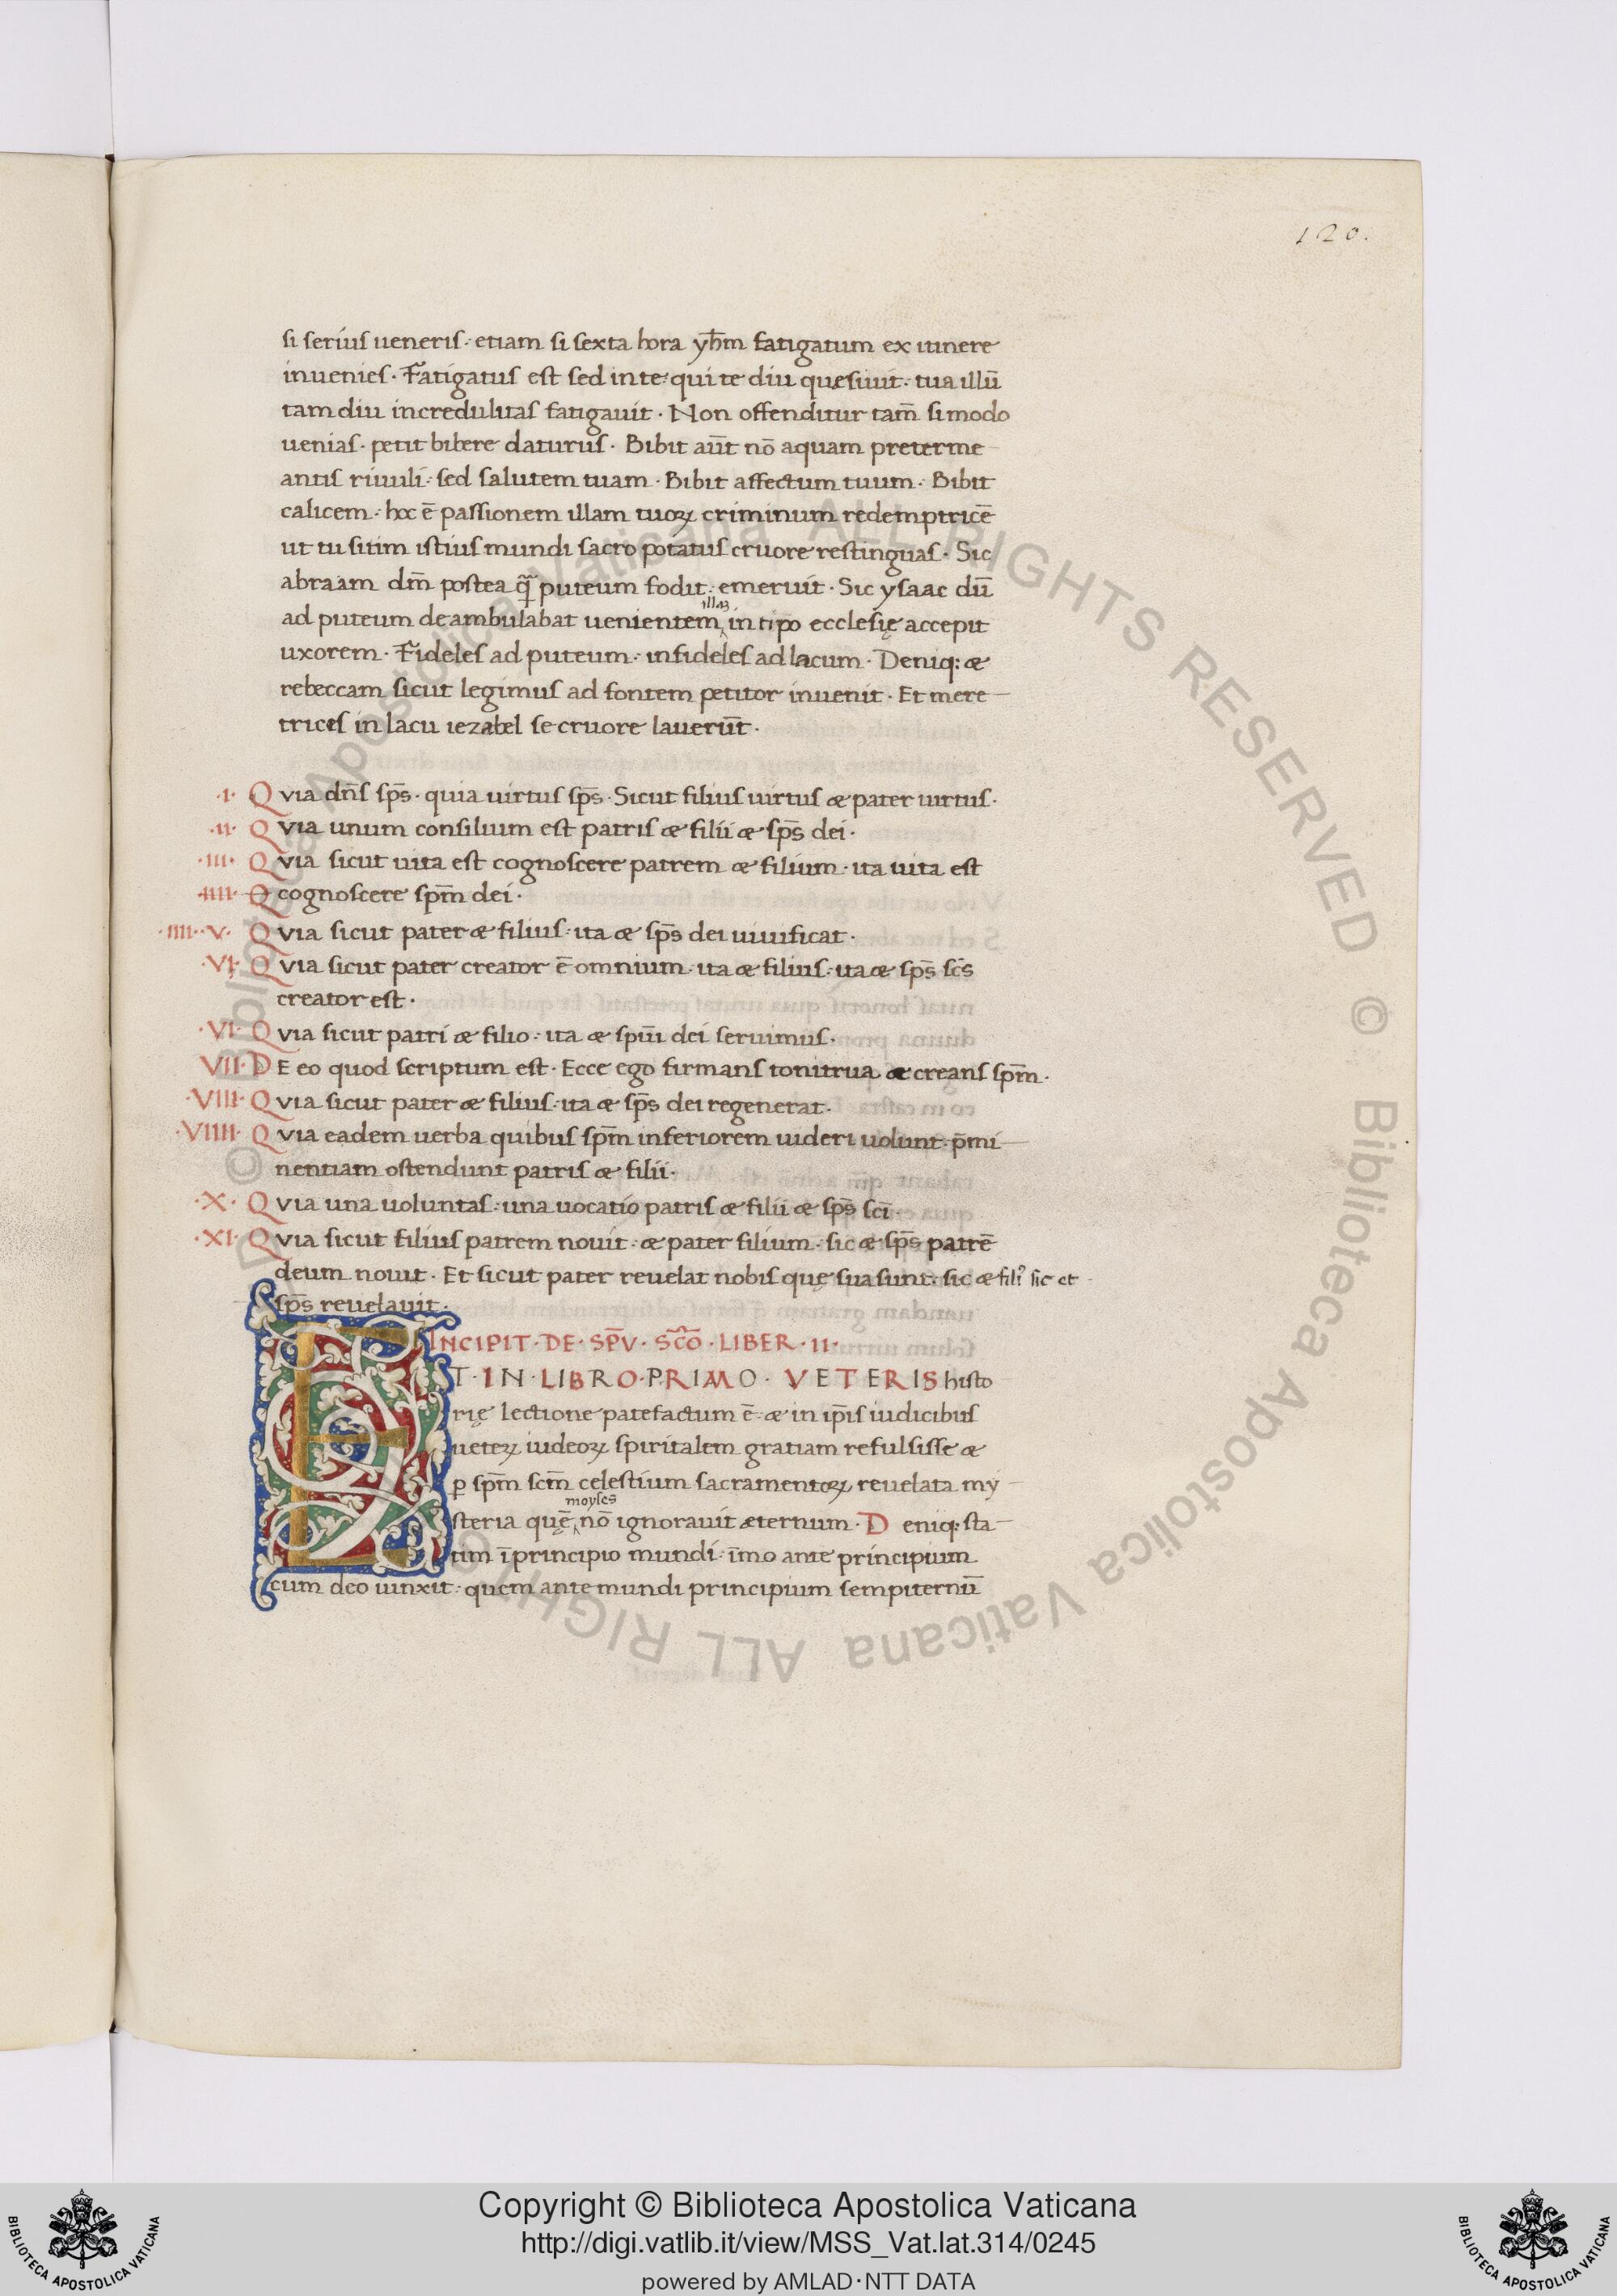 120.
si serius ueneris · etiam si sexta hora yhm̄ fatigatum ex itinere
inuenies · Fatigatus est sed in te · qui te diu quesiuit · tua illū
tam diu incredulitas fatigauit · Non offenditur tam̄ si modo
uenias · petit bibere daturus · Bibit aūt nō aquam preterme
antis riuuli · sed salutem tuam · Bibit affectum tuum · Bibit
calicem · hoc ē passionem illam tuoꝝ criminum redemptricē
ut tu sitim istius mundi sacro potatus cruore restinguas · Sic
abraam dm̄ postea q̃ puteum fodit · emeruit · Sic ysaac dū
illaʒ
ad puteum deambulabat uenientem in tip̄o ecclesię accepit
uxorem · Fideles ad puteum · infideles ad lacum · Deniq: æ
rebeccam sicut legimus ad fontem petitor inuenit · Et mere
trices in lacu iezabel se cruore lauerūt ·
·I· Qvia dn̄s sp̄s · quia uirtus sp̄s · Sicut filius uirtus æ pater uirtus ·
·II· Qvia unum consilium est patris æ filii æ sp̄s dei ·
·III· Qvia sicut uita est cognoscere patrem æ filium · ita uita est
·IIII· Q cognoscere spm̄ dei ·
·IIII· ·V· Qvia sicut pater æ filius · ita æ sp̄s dei uiuificat ·
·VI· Qvia sicut pater creator ē omnium · ita æ filius · ita æ sp̄s sc̄s
creator est ·
·VI· Qvia sicut patri æ filio · ita æ spūi dei seruimus ·
VII· DE eo quod scriptum est · Ecce ego firmans tonitrua æ creans spm̄ ·
·VIII· Qvia sicut pater æ filius · ita æ sp̄s dei regenerat ·
·VIIII· Qvia eadem uerba quibus spm̄ inferiorem uideri uolunt · p̄mi
nentiam ostendunt patris æ filii ·
·X· Qvia una uoluntas · una uocatio patris æ filii æ sp̄s sc̄i ·
·XI· Qvia sicut filius patrem nouit · æ pater filium · sic æ sp̄s patrē
deum nouit · Et sicut pater reuelat nobis quę sua sunt · sic æ fili⁹ sic et
sp̄s reuelauit ·
INCIPIT · DE · SP̄V · SC̄O · LIBER · II ·
ET · IN · LIBRO · PRIMO · VETERIS histo
rię lectione patefactum ē · æ in ip̄is iudicibus
ueteꝝ iudeoꝝ spiritalem gratiam refulsisse æ
ꝑ spm̄ scm̄ celestium sacramentoꝝ reuelata my
moyses
steria quę̄ nō ignorauit æternum · D eniq: sta
tim ī principio mundi · īmo ante principium
cum deo uinxit · quem ante mundi principium sempiternū
© Biblioteca Apostolica Vaticana ALL RIGHTS RESERVED © Biblioteca Apostolica Vaticana ALL RIGHTS
Copyright © Biblioteca Apostolica Vaticana
http://digi.vatlib.it/view/MSS_Vat.lat.314/0245
powered by AMLAD·NTT DATA
BIBLIOTECA APOSTOLICA VATICANA
BIBLIOTECA APOSTOLICA VATICANA